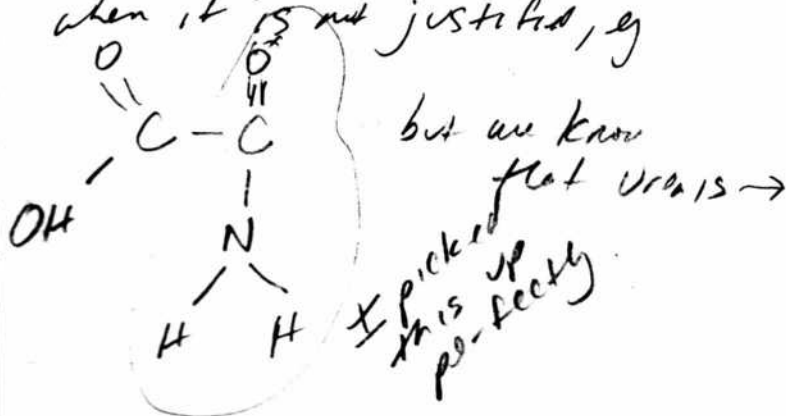 when it is not justified, eg
O O*
C - C
OH
N
H H
but we know
that Urea is →
I picked
this up
perfectly